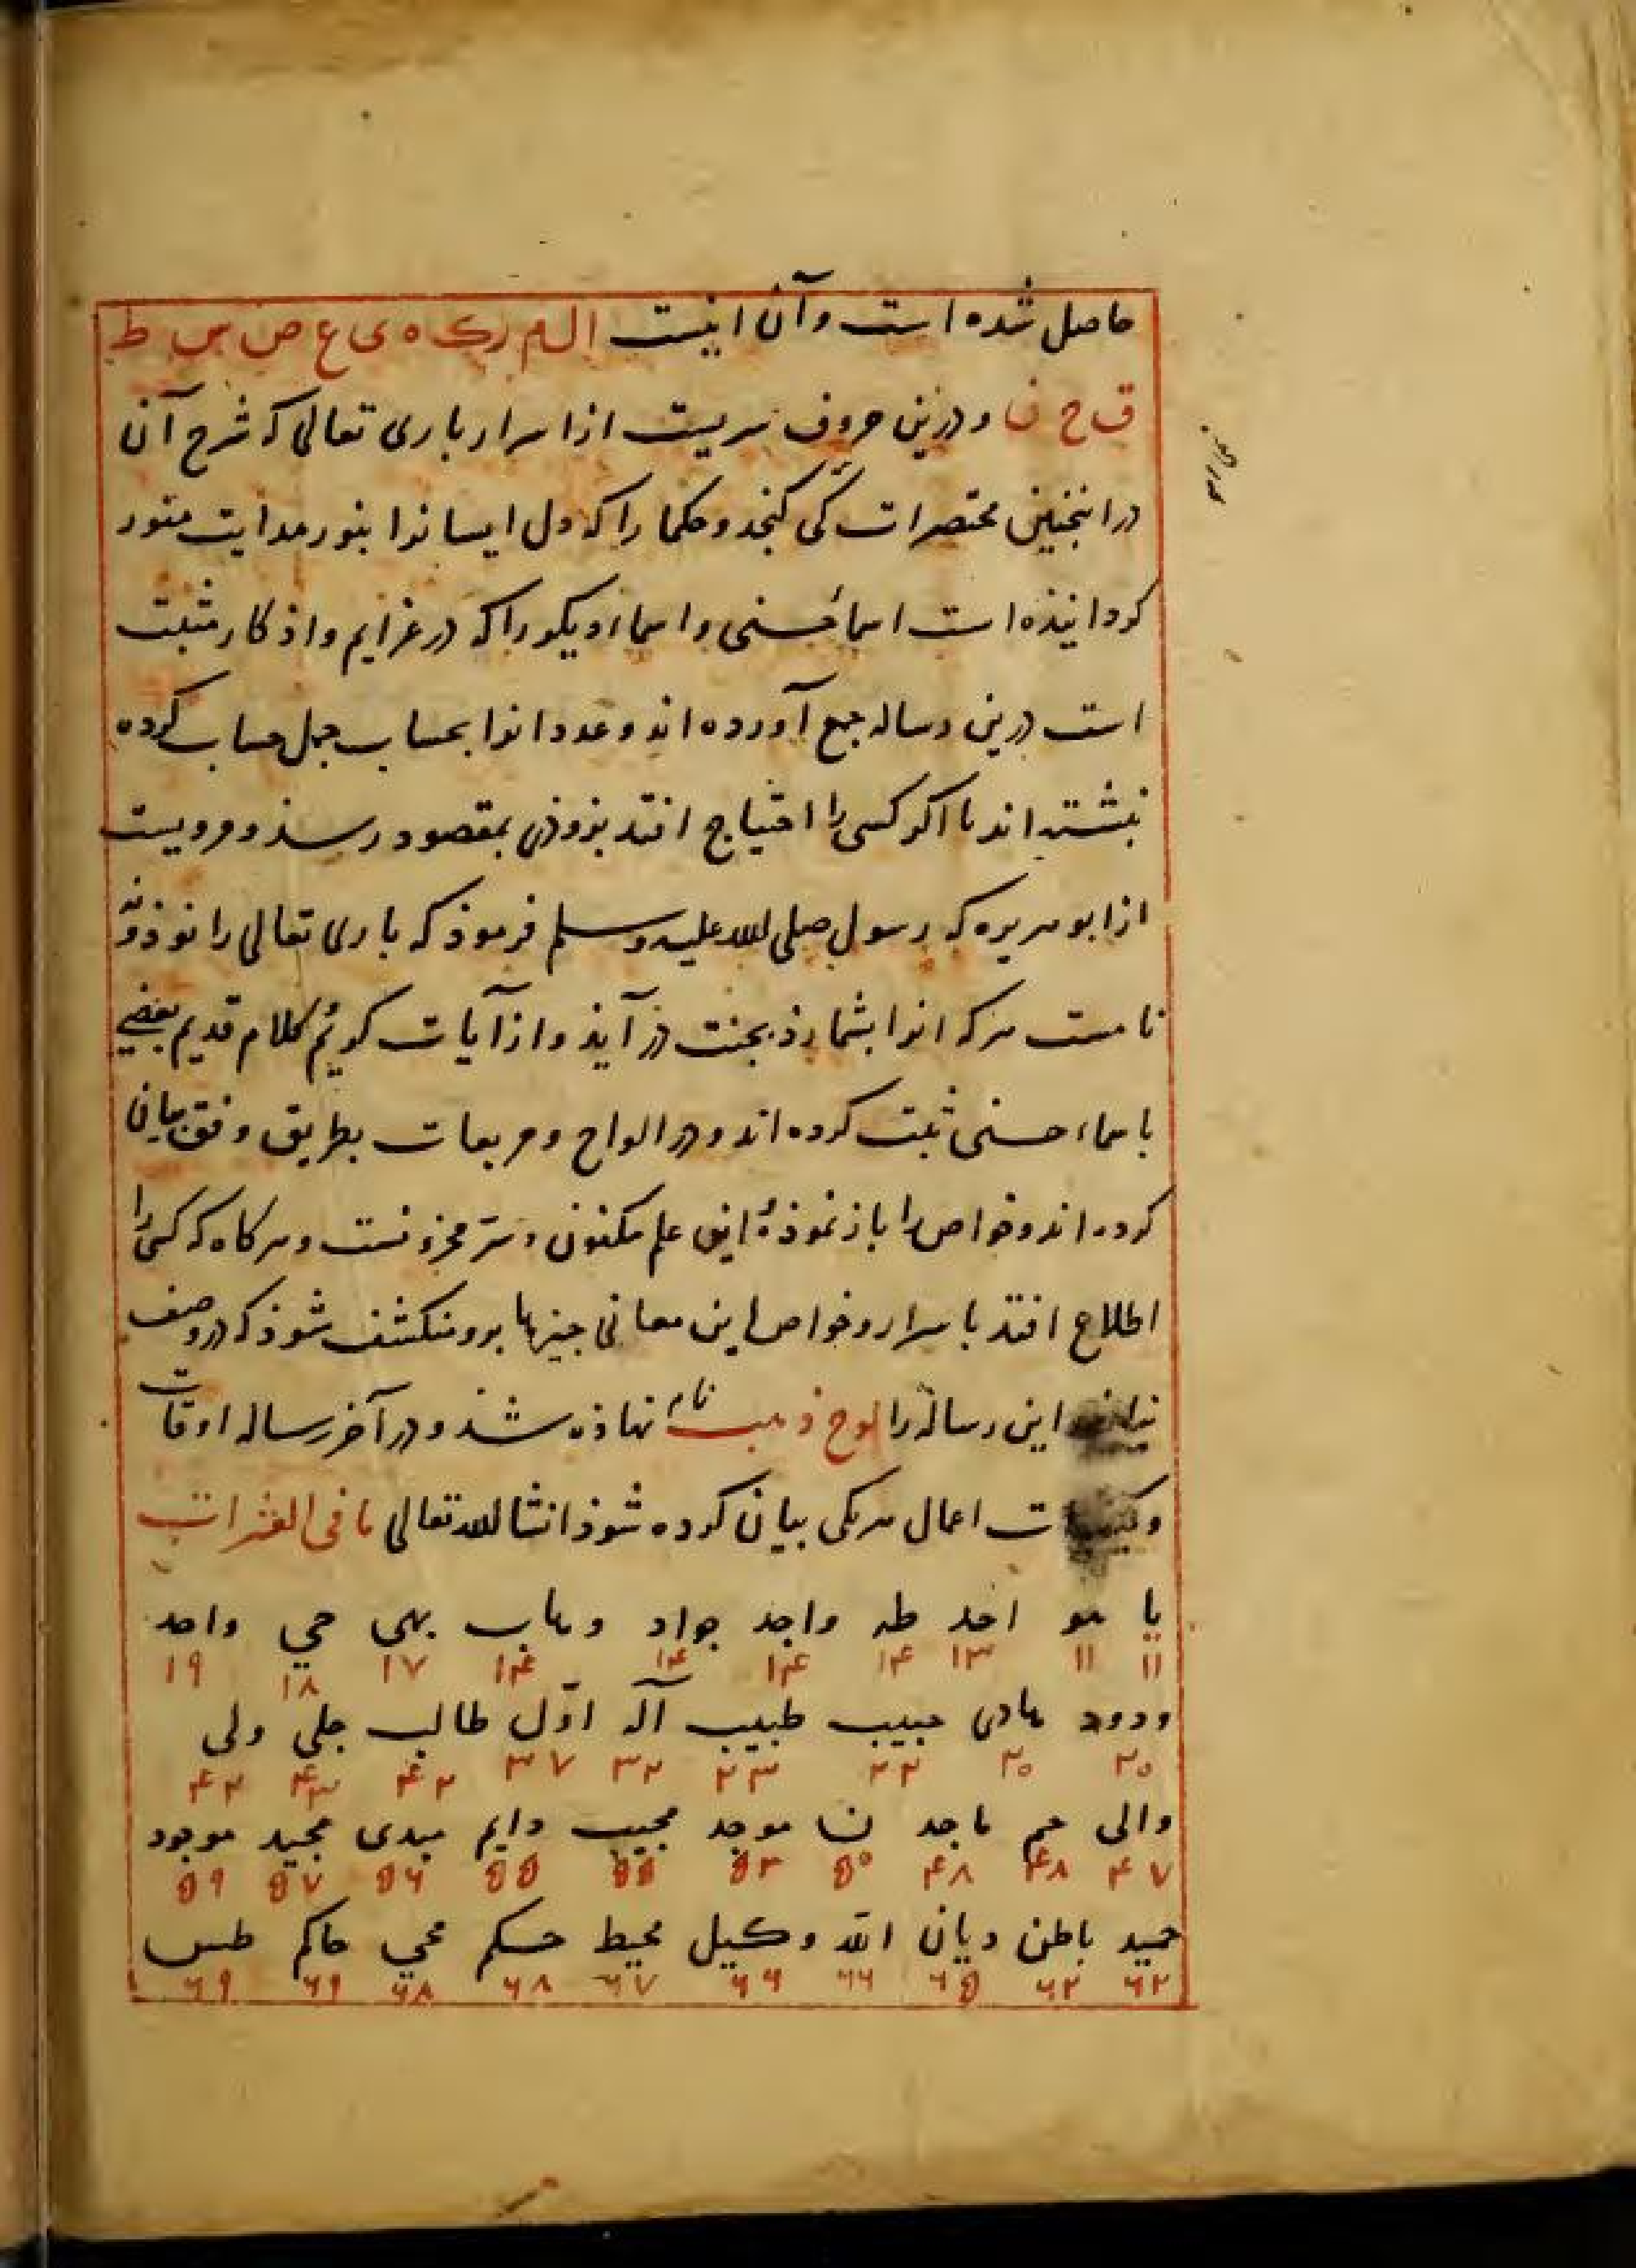 حاصل شده است و آن اینست ا ل م ر ک ه ی ع ص س ط
ق ح ن و درین حروف سریست از اسرار باری تعالی که شرح آن
در اینچنین مختصرات کی کنجد و حکما را که دل ایسانرا بنور هدایت منور
کردانیذه است اسماء حسنی و اسماء دیکر را که در عزایم و اذکار مثبت
است درین رساله جمع آورده اند و عدد انرا بحساب جمل حساب کرده
نبشته اند تا اکر کسی را احتیاج افتد بزوذی بمقصود رسذ و مرویست
از ابو هریره که رسول صلی الله علیه و سلم فرموذ که باری تعالی را نوذ و نه
نامست هرکه انرا بشمارذ بجنت در آیذ و از آیات کریم کلام قدیم بعضی
با سماء حسنی ثبت کرده اند و در الواح و مربعات بطریق وفق بیان
کرده اند و خواص را باز نموذه این علم مکنون و سر مخزونست و هرکاه که کسی را
اطلاع افتد با سرار و خواص این معانی چیزها برو منکشف شوذ که در وصف
نیاید این رساله را لوح ذهب نام نهاذه شذ و در آخر رساله اوقات
و کیفیات اعمال هریکی بیان کرده شوذ انشا الله تعالی
یا هو احد طه واجد جواد وهاب بهی حی واحد
۱۱ ۱۱ ۱۳ ۱۴ ۱۴ ۱۴ ۱۴ ۱۷ ۱۸ ۱۹
ودود هادی حبیب طبیب آله اوّل طالب جلی ولی
۲۰ ۲۰ ۲۲ ۲۳ ۳۲ ۳۷ ۴۲ ۴۳ ۴۲
والی حم ماجد ن موجد مجیب دایم مبدی مجید موجود
۴۷ ۴۸ ۴۸ ۵۰ ۵۳ ۵۵ ۵۵ ۵۶ ۵۷ ۵۹
حمید باطن دیان الله وکیل محیط حکم محیي حاکم طس
۶۲ ۶۲ ۶۵ ۶۶ ۶۶ ۶۷ ۶۸ ۶۸ ۶۹ ۶۹